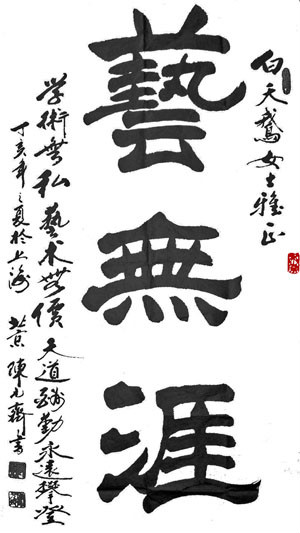 白天鹅女士雅正
藝無涯
学術無私 藝术無價 天道酬勤 永遠攀登
丁亥年之夏於上海 北京 陳九齋書